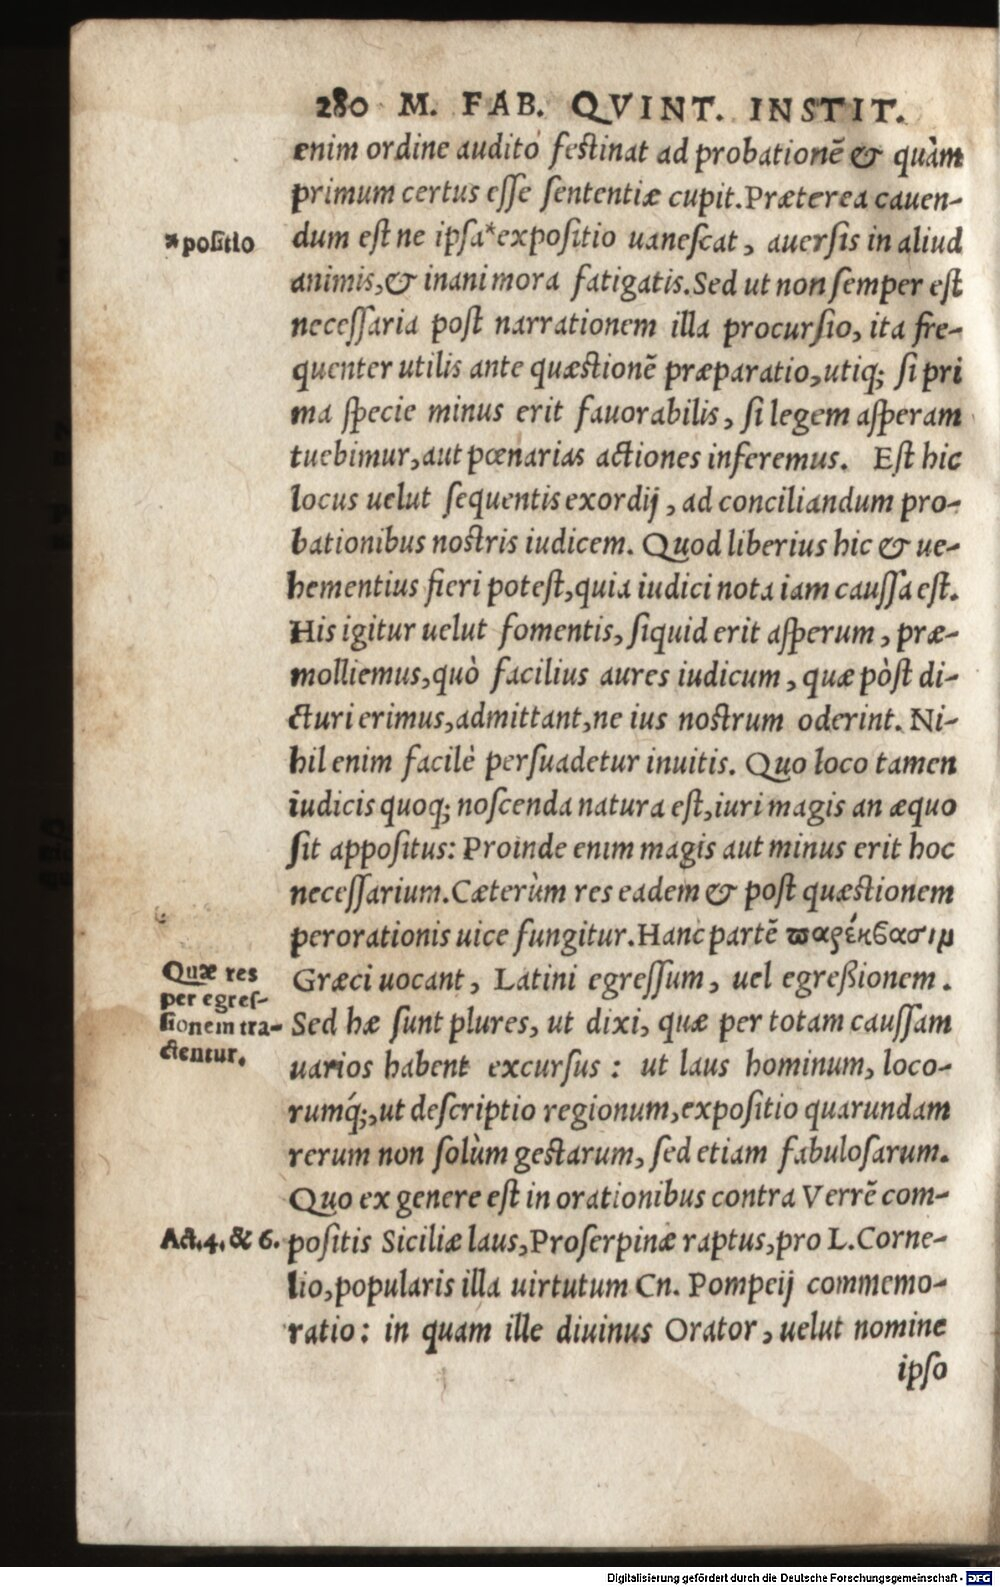 280 M. FAB. QVINT. INSTIT.
enim ordine audito festinat ad probationē & quàm
primum certus esse sententiæ cupit. Præterea cauen-
*positio
dum est ne ipsa*expositio uanescat, auersis in aliud
animis, & inani mora fatigatis. Sed ut non semper est
necessaria post narrationem illa procursio, ita fre-
quenter utilis ante quæstionē præparatio, utiq; si pri
ma specie minus erit fauorabilis, si legem asperam
tuebimur, aut pœnarias actiones inferemus. Est hic
locus uelut sequentis exordij, ad conciliandum pro-
bationibus nostris iudicem. Quod liberius hic & ue-
hementius fieri potest, quia iudici nota iam caussa est.
His igitur uelut fomentis, siquid erit asperum, præ-
molliemus, quò facilius aures iudicum, quæ pòst di-
cturi erimus, admittant, ne ius nostrum oderint. Ni-
hil enim facilè persuadetur inuitis. Quo loco tamen
iudicis quoq; noscenda natura est, iuri magis an æquo
sit appositus: Proinde enim magis aut minus erit hoc
necessarium. Cæterùm res eadem & post quæstionem
perorationis uice fungitur. Hanc partē παρέκβασιμ
Quæ res
per egres-
sionem tra-
ctentur.
Græci uocant, Latini egressum, uel egreßionem.
Sed hæ sunt plures, ut dixi, quæ per totam caussam
uarios habent excursus: ut laus hominum, loco-
rumq́;, ut descriptio regionum, expositio quarundam
rerum non solùm gestarum, sed etiam fabulosarum.
Quo ex genere est in orationibus contra Verrē com-
Act. 4. & 6.
positis Siciliæ laus, Proserpinæ raptus, pro L. Corne-
lio, popularis illa uirtutum Cn. Pompeij commemo-
ratio: in quam ille diuinus Orator, uelut nomine
ipso
Digitalisierung gefördert durch die Deutsche Forschungsgemeinschaft - DFG